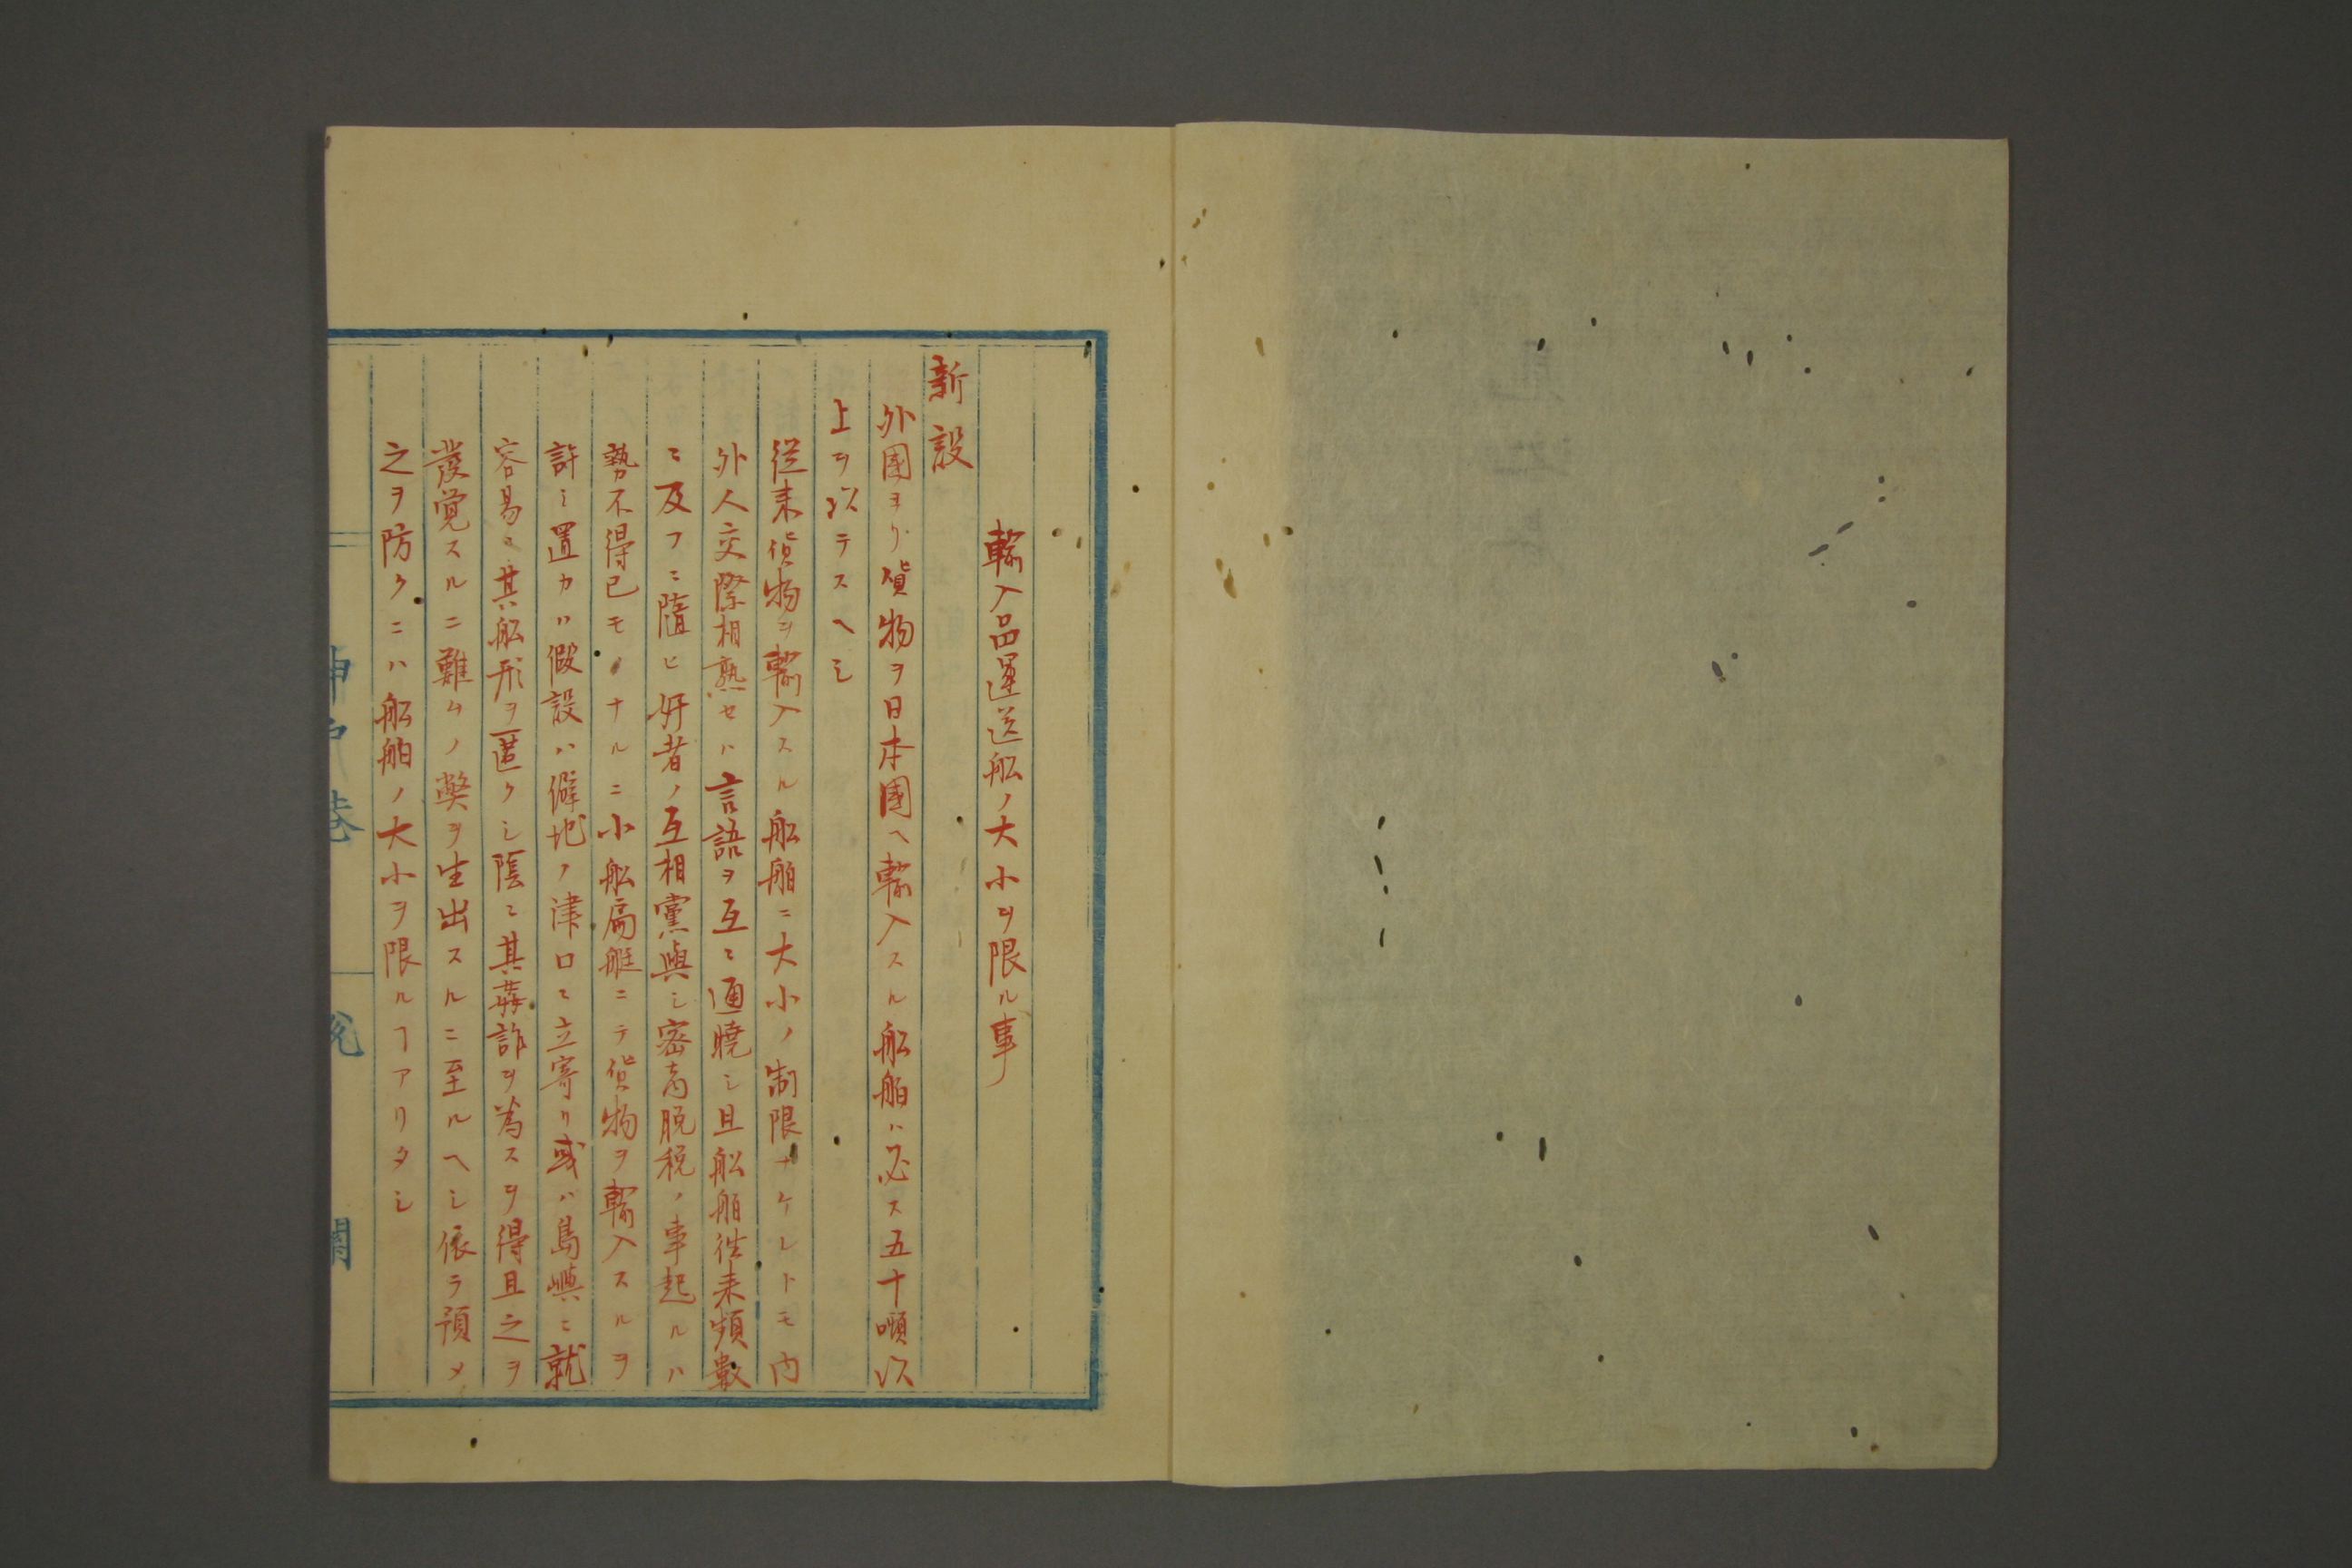 輸入品運送舩ノ大小ヲ限ル事
新設
外國ヨリ貨物ヲ日本國ヘ輸入スル舩舶ハ必ス五十噸以
上ヲ以テスヘシ
従来貨物ヲ輸入スル舩舶ニ大小ノ制限ナケレトモ内
外人交際相熟セハ言語ヲ互ニ通曉シ且舩舶徃来頻數
ニ及フニ隨ヒ奸者ノ互相黨與シ密商脱税ノ事起ルハ
勢不得已モノナルニ小舩扁艇ニテ貨物ヲ輸入スルヲ
許シ置カハ假設ハ僻地ノ津口ニ立寄リ或ハ島嶼ニ就
容易ニ其舩形ヲ匿クシ陰ニ其姦詐ヲ為スヲ得且之ヲ
發覚スルニ難ムノ弊ヲ生出スルニ至ルヘシ依テ預メ
之ヲ防クニハ舩舶ノ大小ヲ限ルヿアリタシ
神戸港 税 関